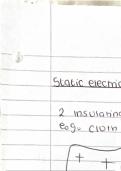 Static electric
2 insulating
e.g. cloth
+ +